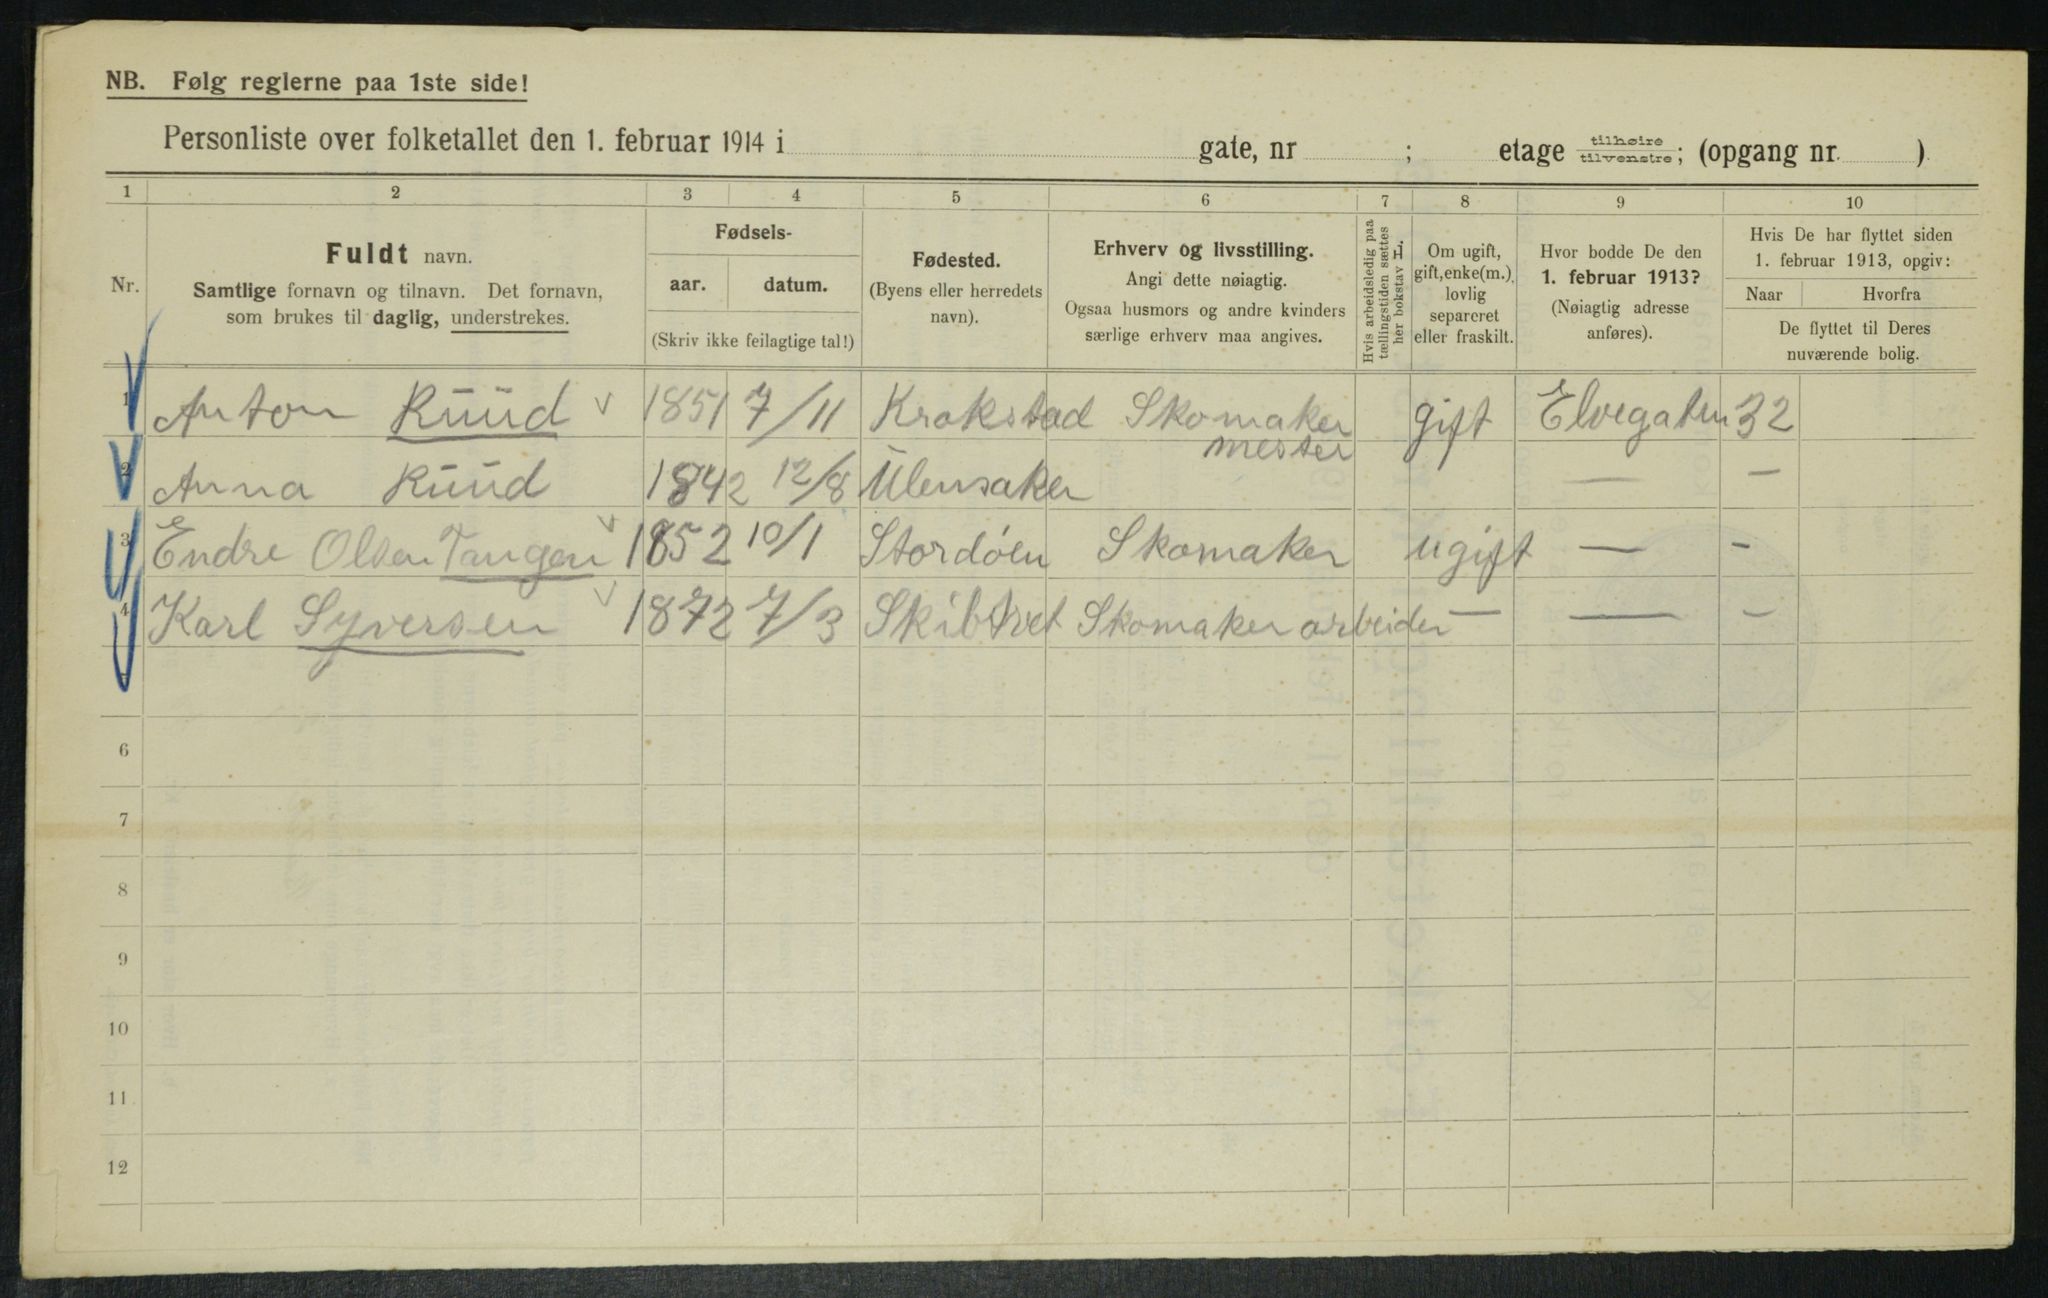 NB. Følg reglerne paa 1ste side!
Personliste over folketallet den 1. februar 1914 i gate, nr ; etage tilhøire/tilvenstre; (opgang nr. )
1 2 3 4 5 6 7 8 9 10
Nr.
Fuldt navn.
Samtlige fornavn og tilnavn. Det fornavn,
som brukes til daglig, understrekes.
Fødsels-
aar. datum.
(Skriv ikke feilagtige tal!)
Fødested.
(Byens eller herredets
navn).
Erhverv og livsstilling.
Angi dette nøiagtig.
Ogsaa husmors og andre kvinders
særlige erhverv maa angives.
Hvis arbeidsledig paa
tællingstiden sættes
her bokstav L.
Om ugift,
gift, enke(m.),
lovlig
separeret
eller fraskilt.
Hvor bodde De den
1. februar 1913?
(Nøiagtig adresse
anføres).
Hvis De har flyttet siden
1. februar 1913, opgiv:
Naar Hvorfra
De flyttet til Deres
nuværende bolig.
1 Anton Ruud 1851 7/11 Krakstad Skomaker mester gift Elvegaten 32
2 Anna Ruud 1842 12/8 Ulensaker — —
3 Endre Olsen Tangen 1852 10/1 Stordøen Skomaker ugift — -
4 Karl Syversen 1872 7/3 Skibtvet Skomaker arbeider — — -
6
7
8
9
10
11
12